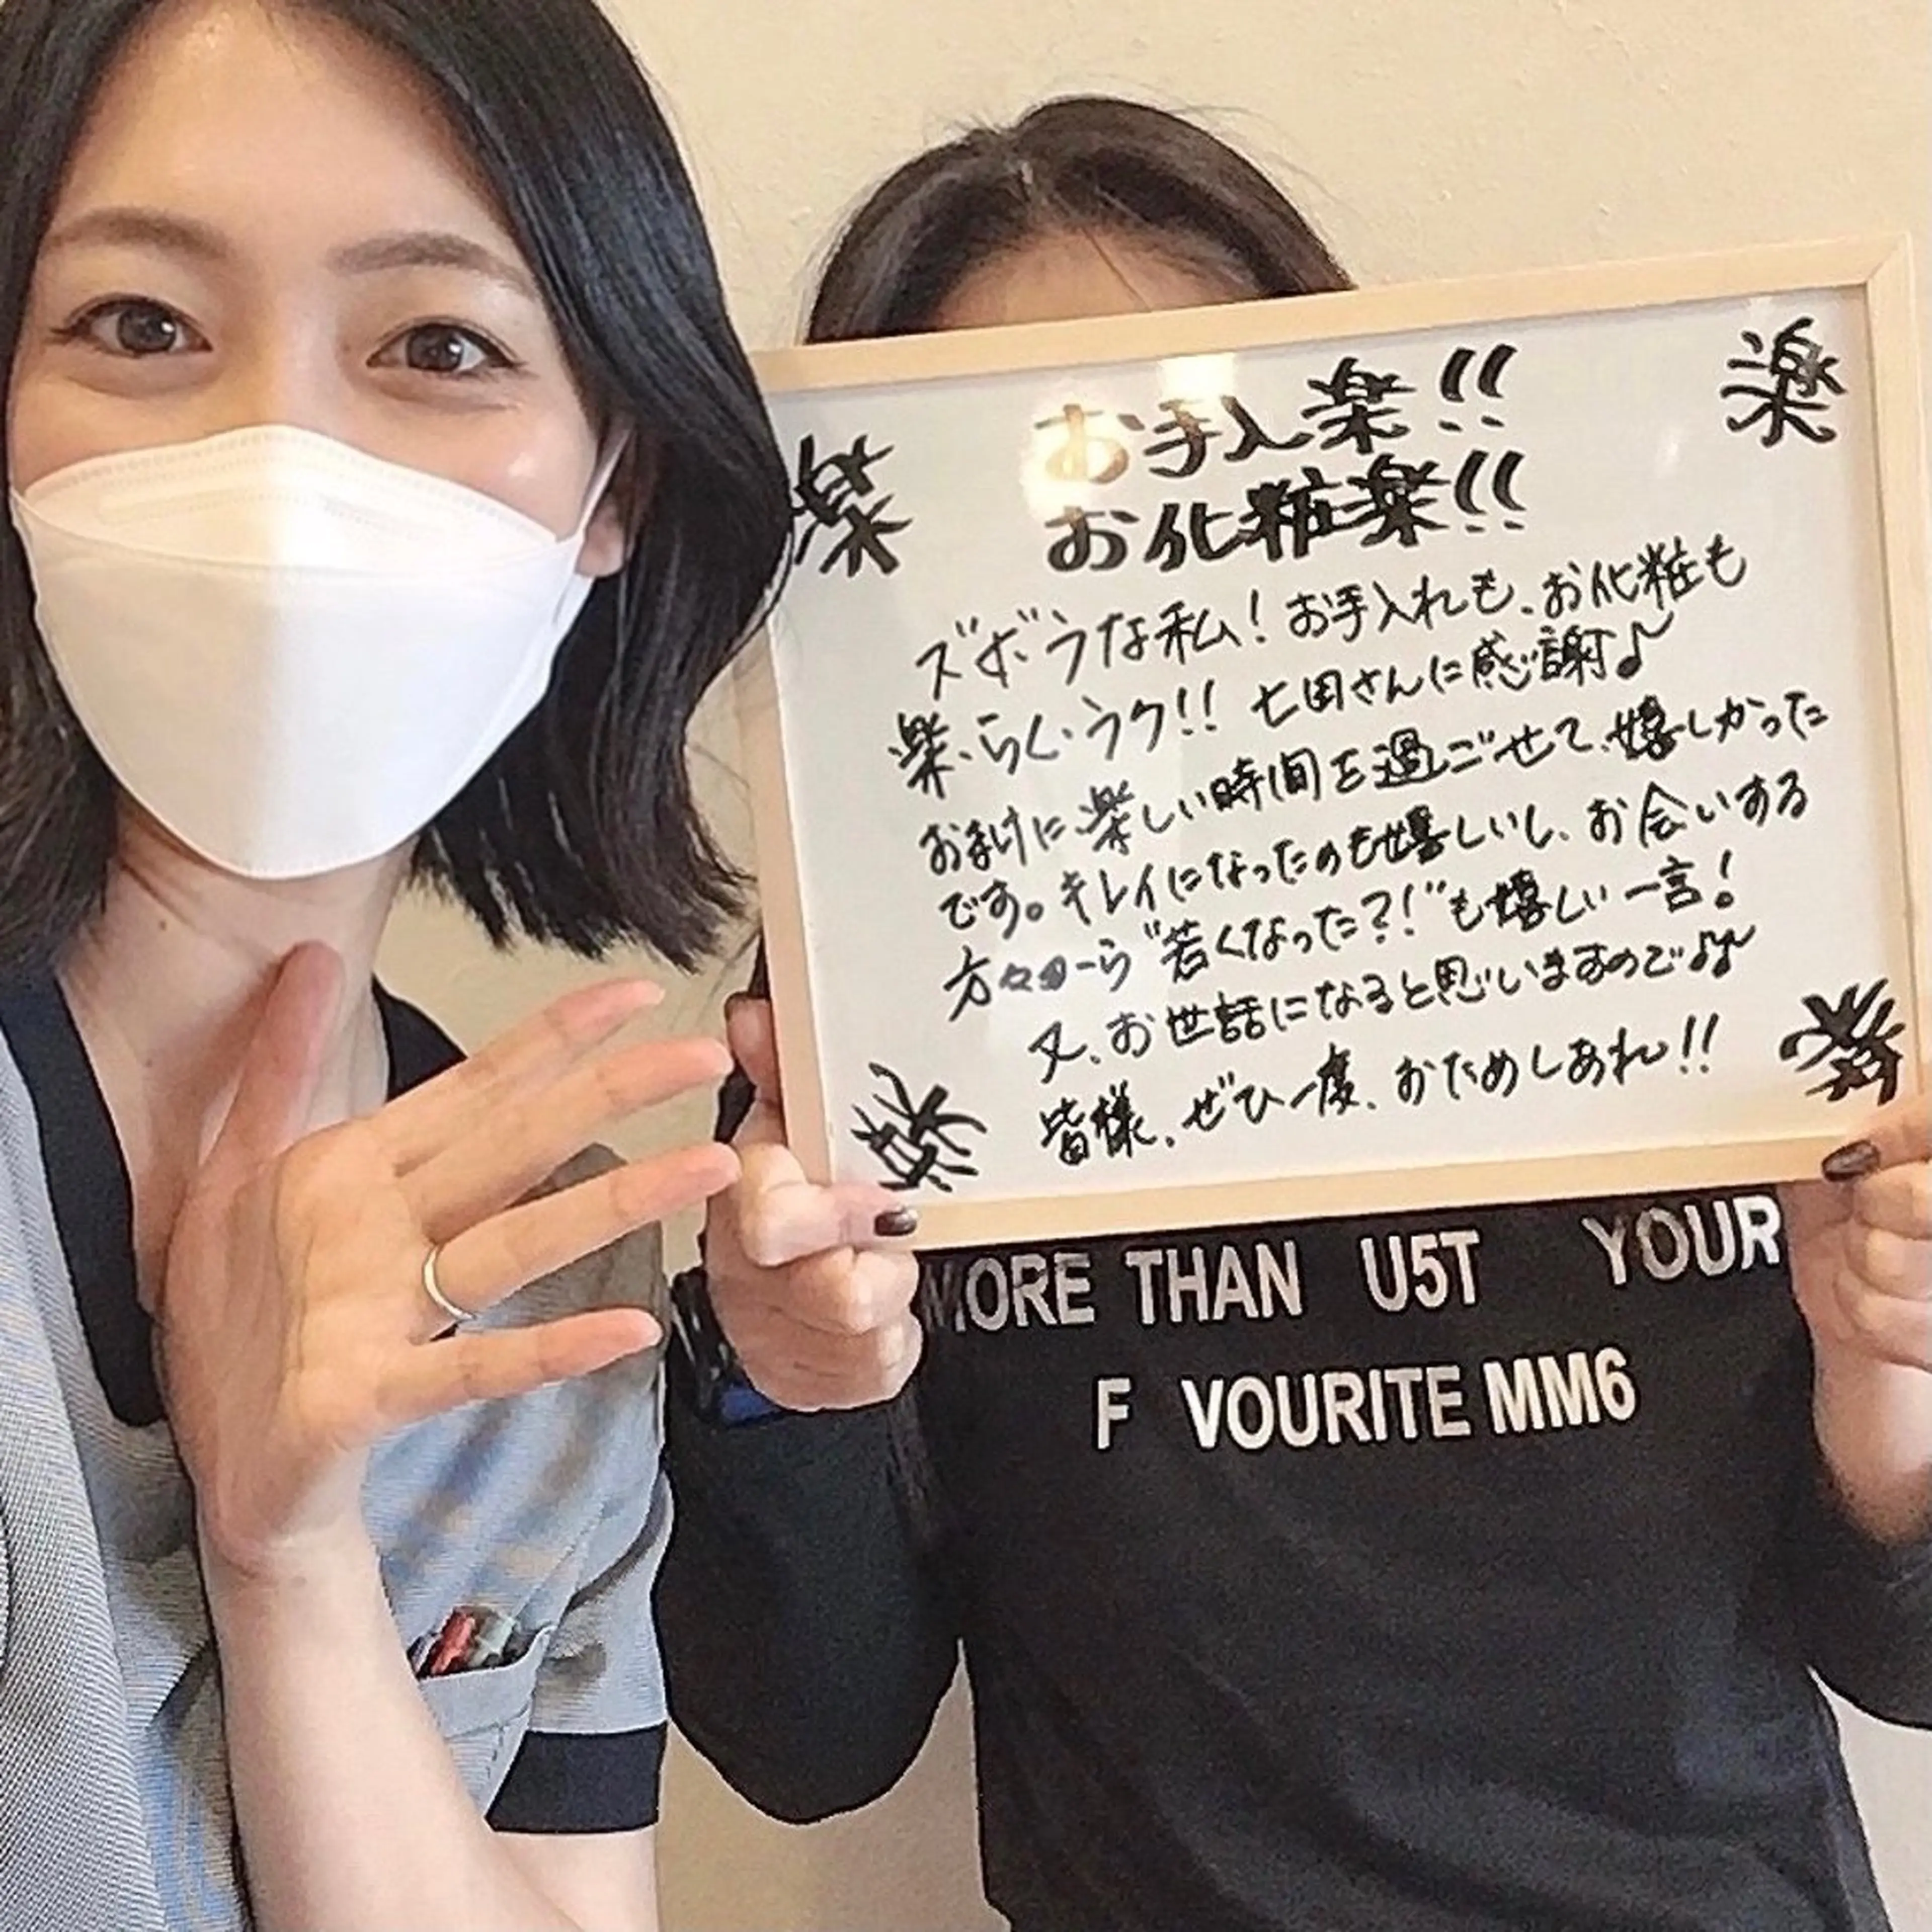 楽
楽
お手入楽!!
お化粧楽!!
ズボラな私!お手入れも、お化粧も
楽・らく・ラク!! 七田さんに感謝♪
おまけに楽しい時間を過ごせて、嬉しかった
です。キレイになったのも嬉しいし、お会いする
方々から"若くなった?!"も嬉しい一言!
又、お世話になると思いますので♪
皆様、ぜひ一度、おためしあれ!!
楽
楽
MORE THAN U5T YOUR
F VOURITE MM6